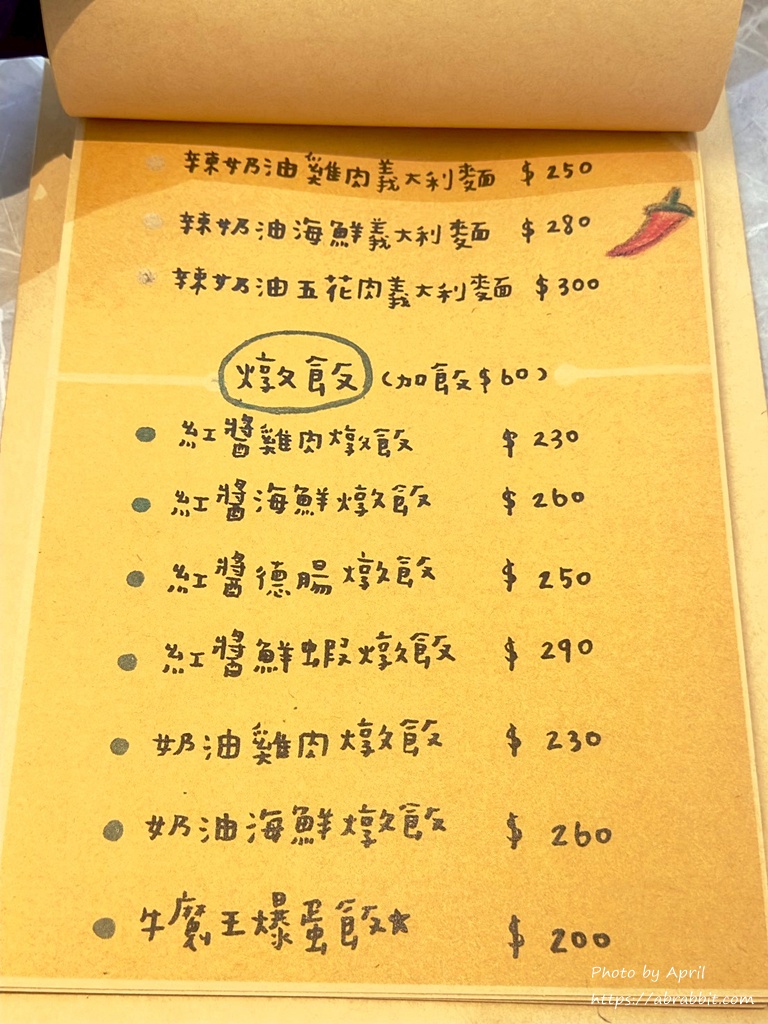 辣奶油雞肉義大利麵 $250
辣奶油海鮮義大利麵 $280
辣奶油五花肉義大利麵 $300
燉飯 (加飯$60)
紅醬雞肉燉飯 $230
紅醬海鮮燉飯 $260
紅醬德腸燉飯 $250
紅醬鮮蝦燉飯 $290
奶油雞肉燉飯 $230
奶油海鮮燉飯 $260
牛魔王爆蛋飯☆ $200
Photo by April
https://abrabbit.com